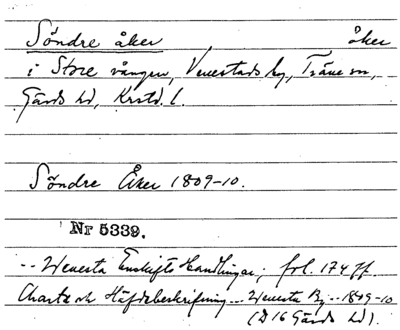 Söndre åker åker
i Store vången, Venestads by, Träne sn,
Gärds hd, Krstd. l.
Söndre Åker 1809-10.
Nr 5339.
-- Wenesta Enskifts Handlingar; fol. 174 ff
Charta och Häfdebeskrifning -- Wenesta By -- 1809-10
(D 16 Gärds hd).